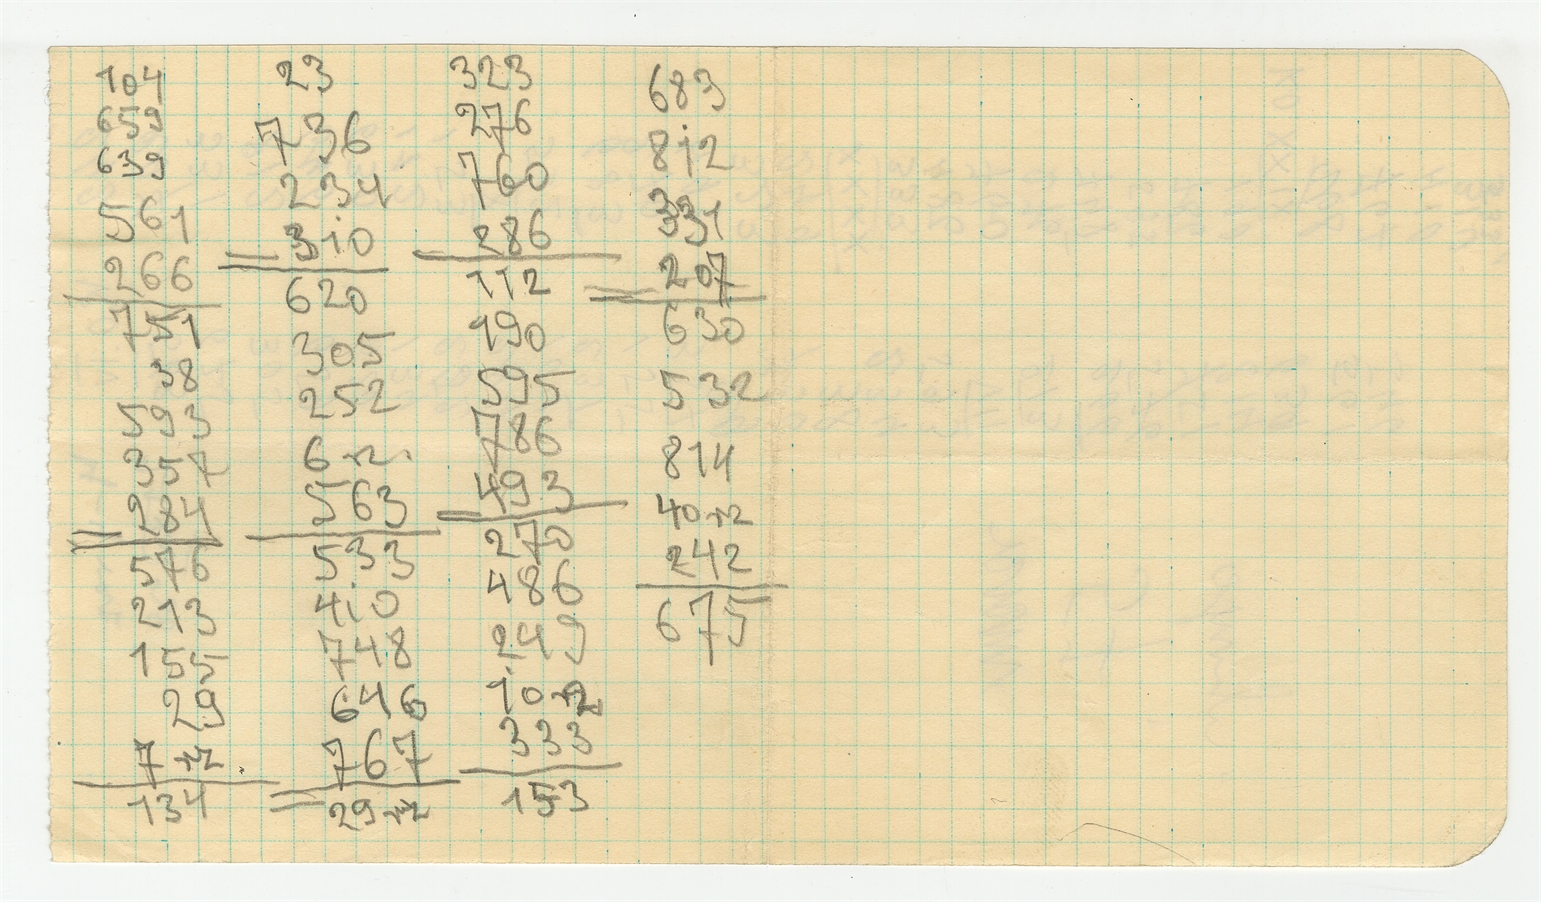 104
659
639
561
266
751
38
593
357
284
576
213
155
29
7
134
23
736
234
310
620
305
252
6
563
533
410
748
646
767
29
323
276
760
286
112
190
595
786
493
270
486
249
10
333
153
683
812
331
207
630
532
814
40
242
675